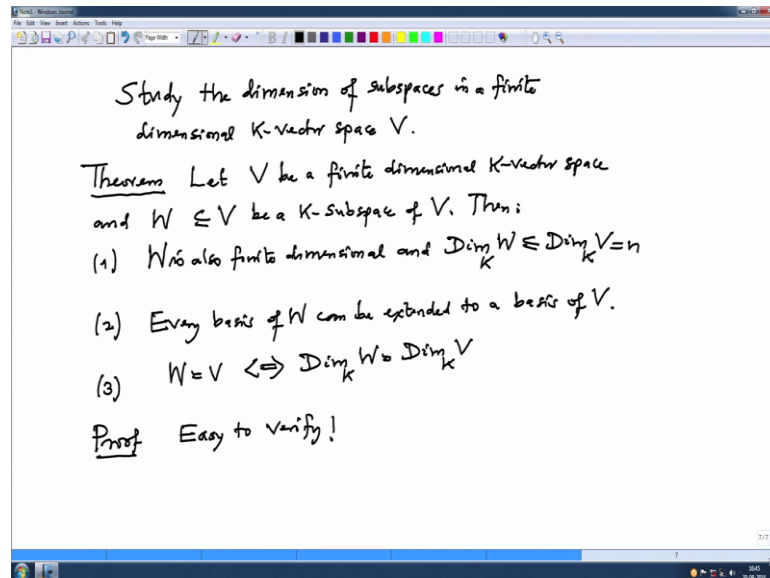 Note1 - Windows Journal
File Edit View Insert Actions Tools Help
Page Width
B I
Study the dimension of subspaces in a finite
dimensional K-vector space V.
Theorem Let V be a finite dimensional K-vector space
and W ⊆ V be a K-subspace of V. Then:
(1) W is also finite dimensional and Dim_K W ≤ Dim_K V = n
(2) Every basis of W can be extended to a basis of V.
(3) W = V <=> Dim_K W = Dim_K V
Proof Easy to verify!
7/7
7
16:45